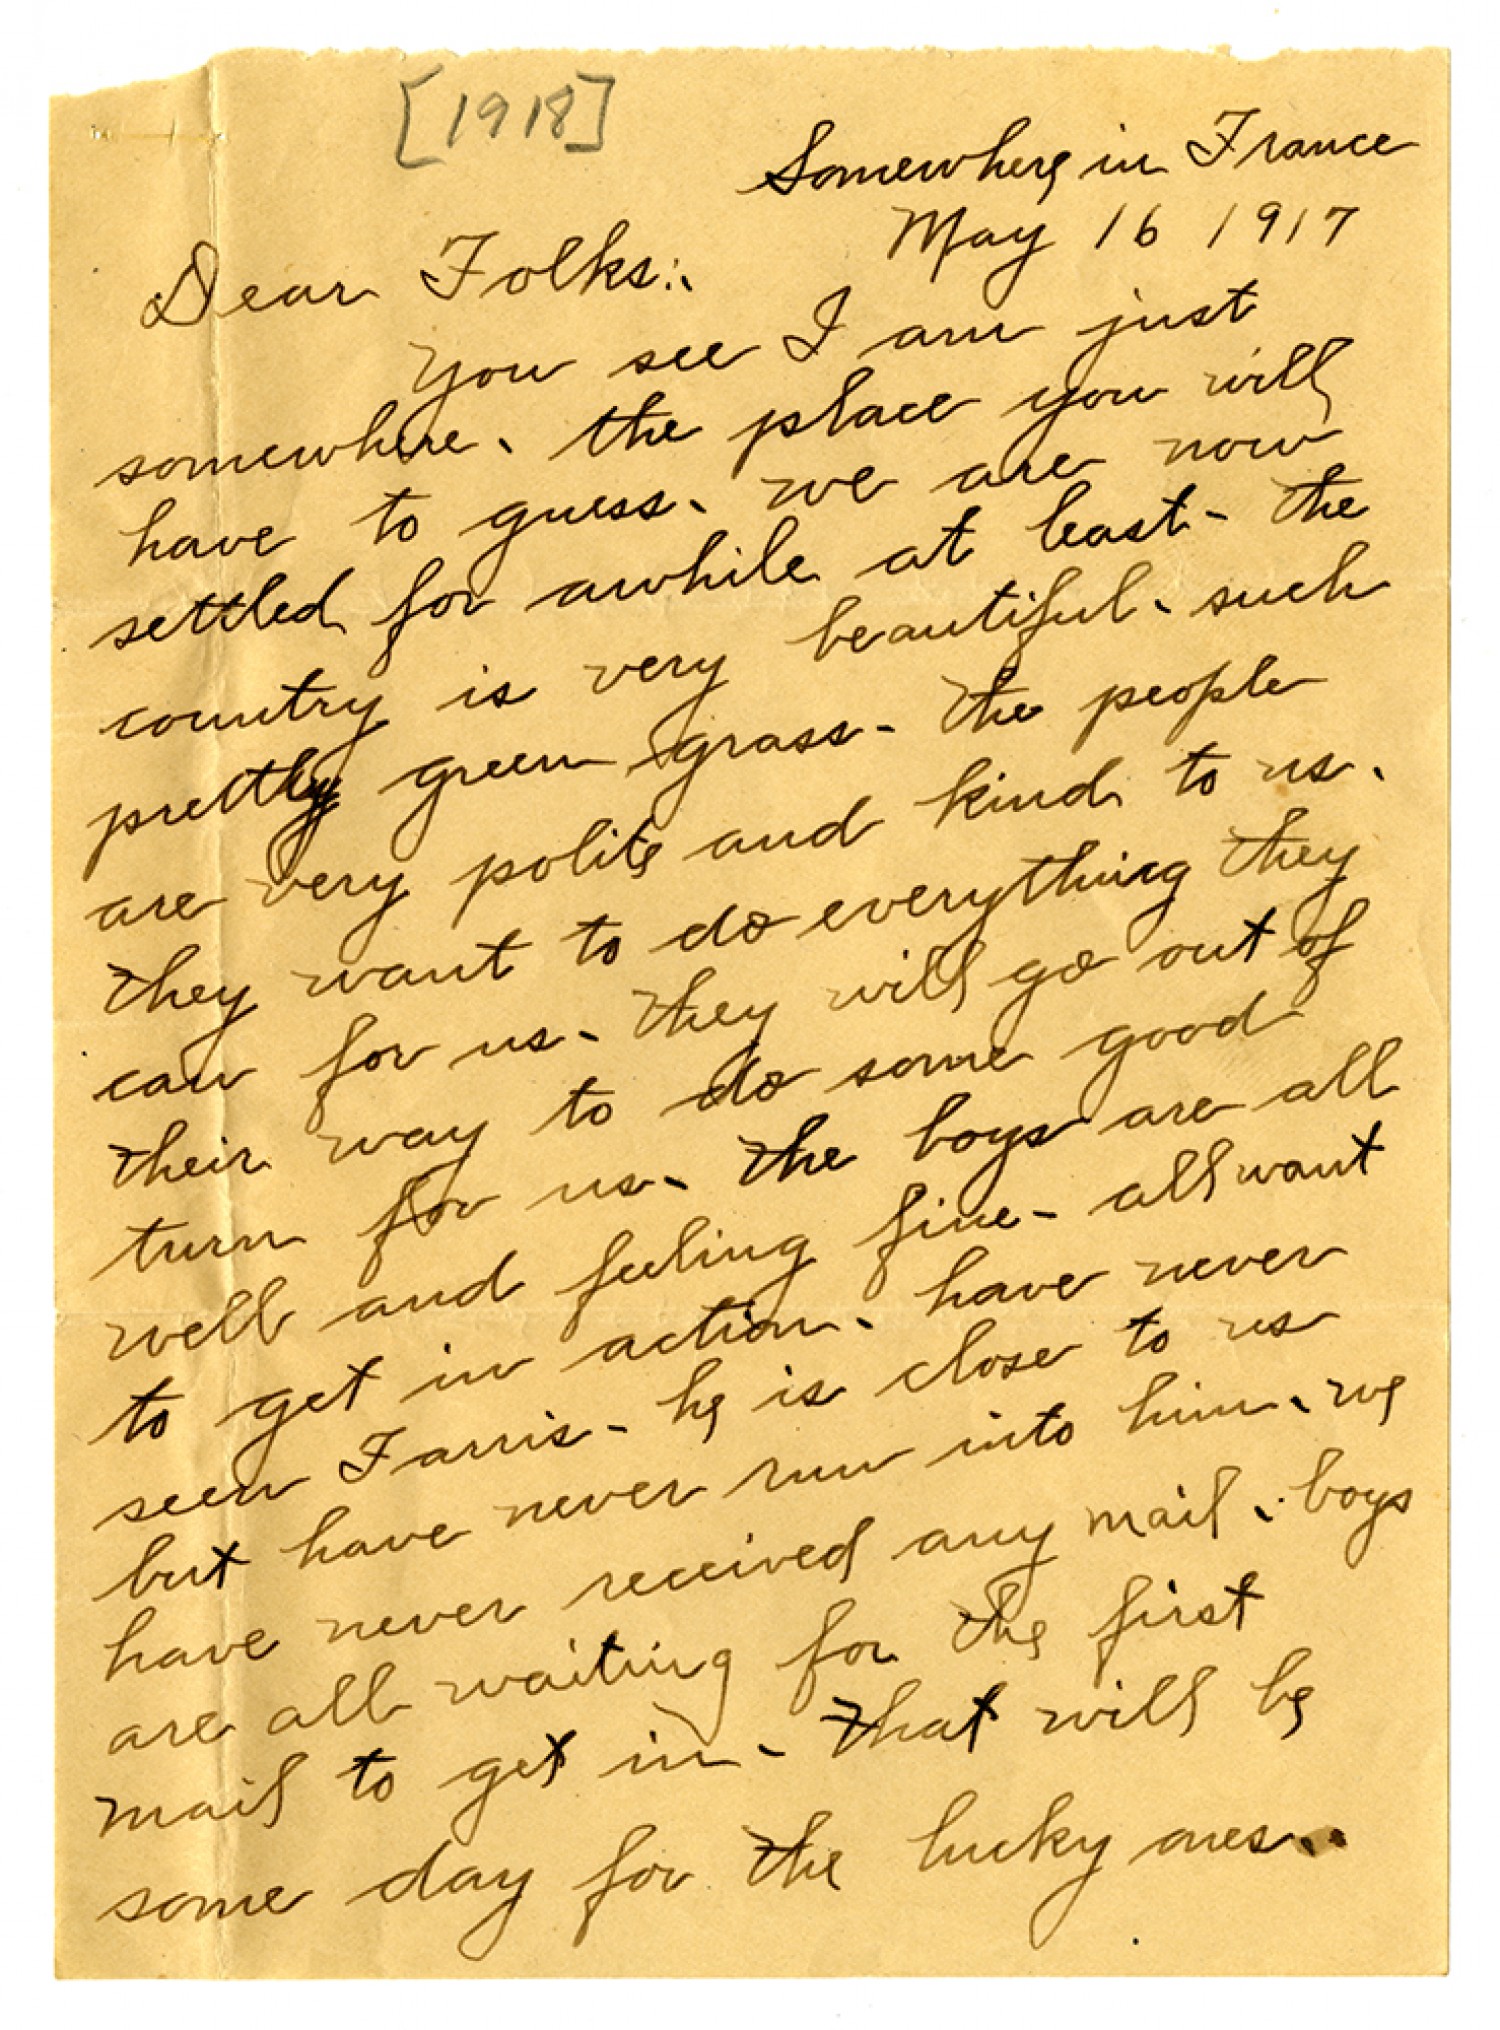 [1918]
Somewhere in France
May 16 1917
Dear Folks:.
You see I am just
somewhere. the place you will
have to guess. we are now
settled for awhile at least - the
country is very beautiful. such
pretty green grass - the people
are very polite and kind to us.
they want to do everything they
can for us. they will go out of
their way to do some good
turn for us. the boys are all
well and feeling fine - all want
to get in action. have never
seen Farris - he is close to us
but have never run into him. we
have never received any mail. boys
are all waiting for the first
mail to get in. that will be
some day for the lucky ones..